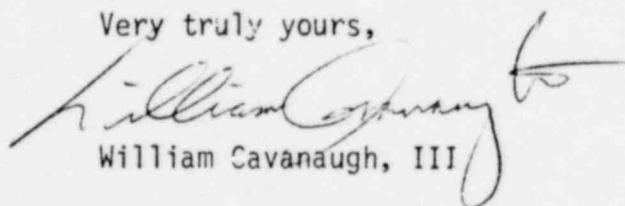 Very truly yours,
William Cavanaugh
William Cavanaugh, III